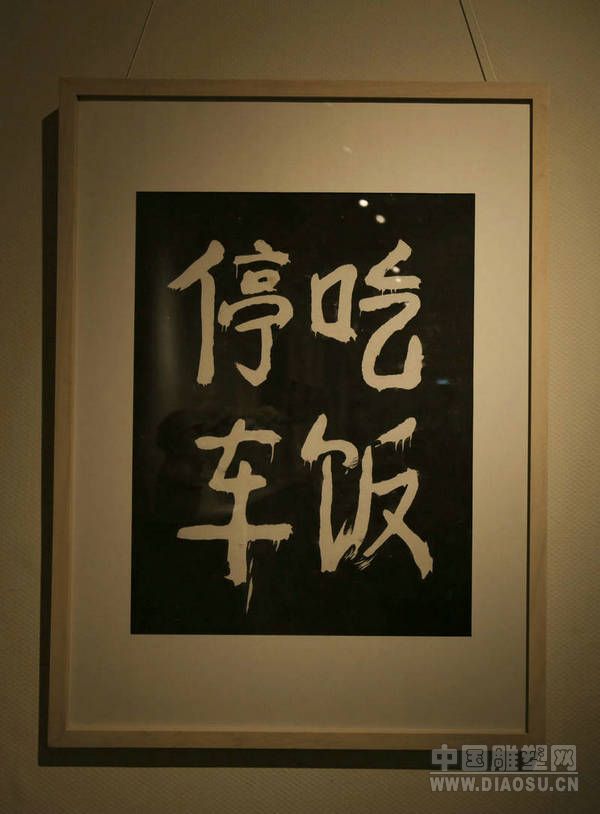 吃饭
停车
中国雕塑网
WWW.DIAOSU.CN